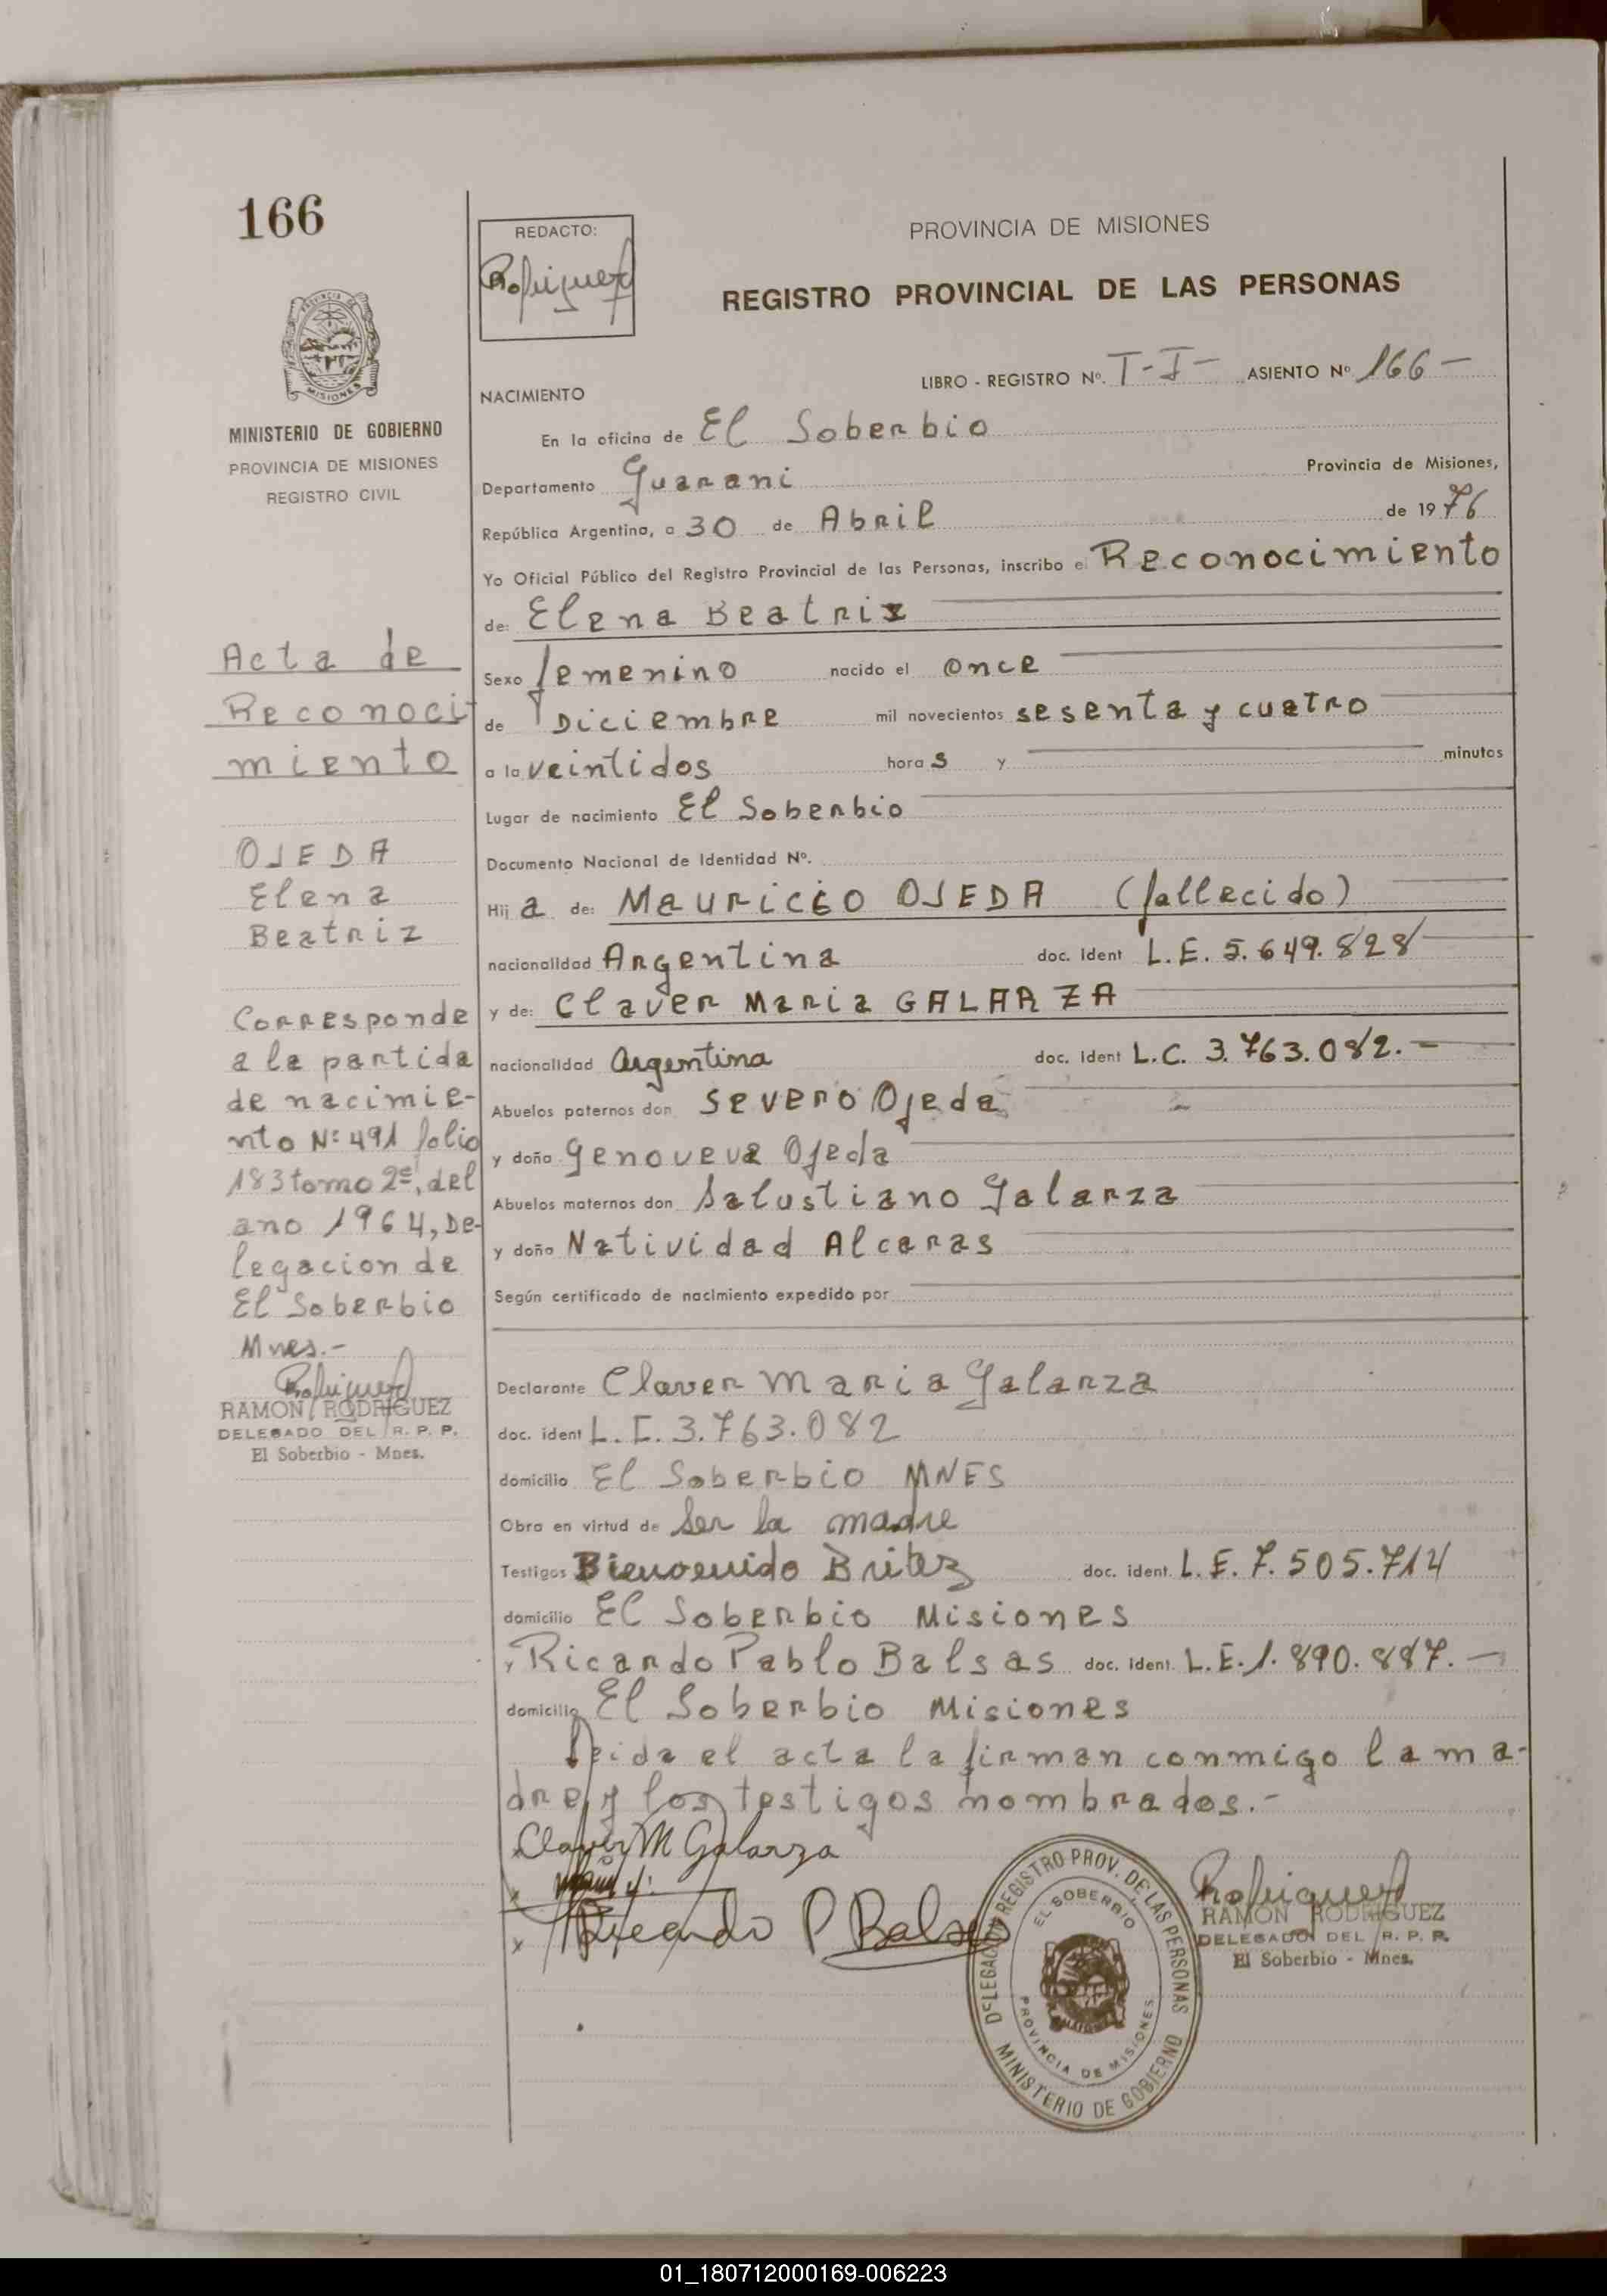 166
REDACTO:
Rodriguez
PROVINCIA DE MISIONES
REGISTRO PROVINCIAL DE LAS PERSONAS
PROVINCIA DE
MISIONES
MINISTERIO DE GOBIERNO
PROVINCIA DE MISIONES
REGISTRO CIVIL
LIBRO - REGISTRO Nº. T-I- ASIENTO Nº 166-
NACIMIENTO
En la oficina de El Soberbio
Departamento Guarani Provincia de Misiones,
República Argentina, a 30 de Abril de 1976
Yo Oficial Público del Registro Provincial de las Personas, inscribo el Reconocimiento
de: Elena Beatriz
Sexo femenino nacido el once
de Diciembre mil novecientos sesenta y cuatro
a la veintidos hora s y minutos
Lugar de nacimiento El Soberbio
Documento Nacional de Identidad Nº.
Hij a de: Mauricio OJEDA (fallecido)
nacionalidad Argentina doc. ident L.E. 5.649.828
y de: Claver Maria GALARZA
nacionalidad Argentina doc. ident L.C. 3.763.082.-
Abuelos paternos don Severo Ojeda
y doña Genoveva Ojeda
Abuelos maternos don Salustiano Galarza
y doña Natividad Alcaras
Según certificado de nacimiento expedido por
Declarante Claver Maria Galarza
doc. ident L.C. 3.763.082
domicilio El Soberbio MNES
Obra en virtud de Ser la madre
Testigos Bienvenido Britez doc. ident. L.E. 7.505.714
domicilio El Soberbio Misiones
y Ricardo Pablo Balsas doc. ident. L.E. 1.890.887.-
domicilio El Soberbio Misiones
Leida el acta la firman conmigo la ma-
dre y los testigos nombrados.-
Acta de
Reconoci
miento
OJEDA
Elena
Beatriz
Corresponde
a la partida
de nacimie-
nto Nº 491 folio
183 tomo 2º, del
ano 1964, De-
legacion de
El Soberbio
Mnes.-
Rodriguez
RAMON RODRIGUEZ
DELEGADO DEL R. P. P.
El Soberbio - Mnes.
Claver M Galarza
x
x Ricardo P Balsas
DELEGACION REGISTRO PROV. DE LAS PERSONAS
EL SOBERBIO
PROVINCIA DE MISIONES
MINISTERIO DE GOBIERNO
Rodriguez
RAMON RODRIGUEZ
DELEGADO DEL R. P. P.
El Soberbio - Mnes.
01_180712000169-006223